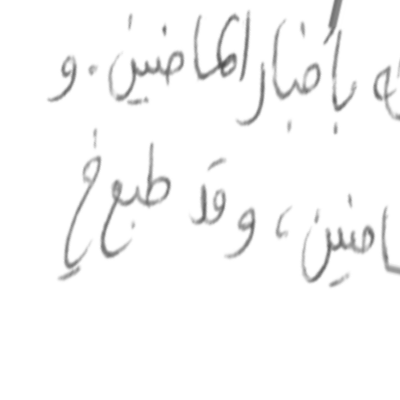 بأخبار الماضين. و
ضين، وقد طبع في